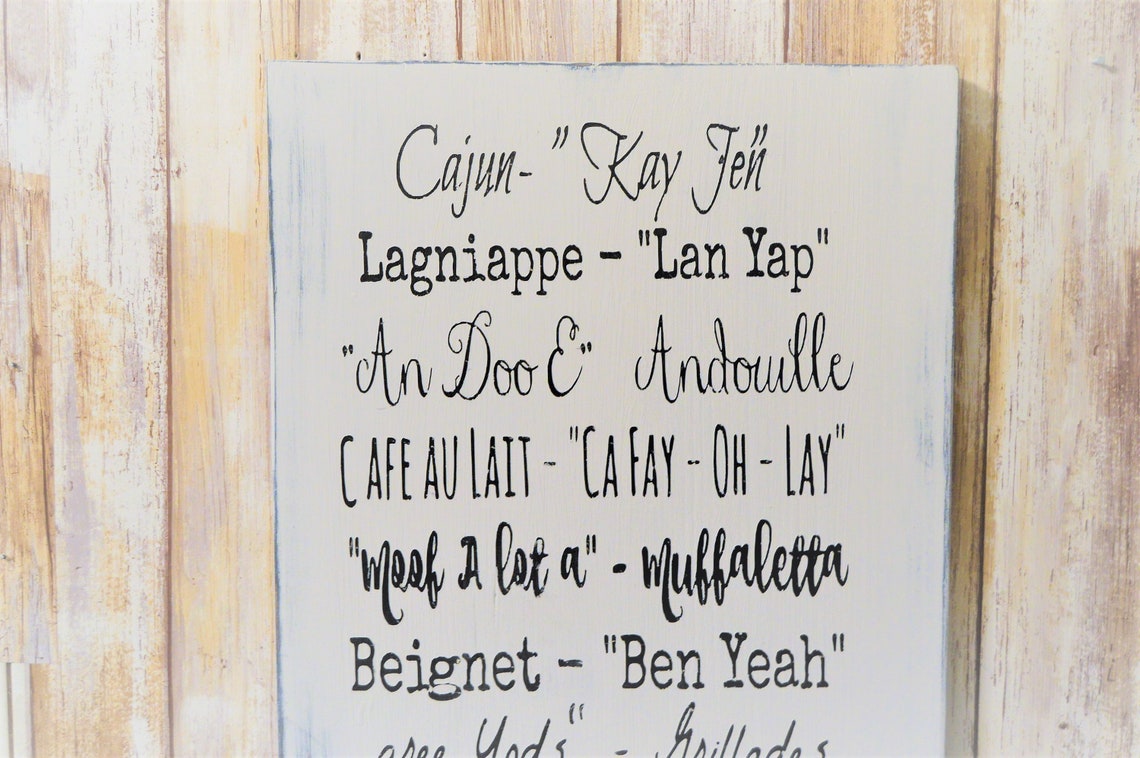 Cajun- "Kay Jen"
Lagniappe - "Lan Yap"
"An Doo E" Andouille
CAFE AU LAIT - "CA FAY - OH - LAY"
"Moof A lot a" - Muffaletta
Beignet - "Ben Yeah"
gree Yods" - Grillades